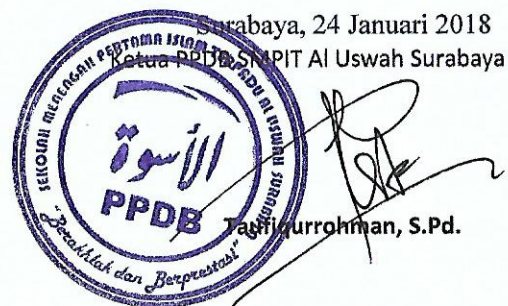 Surabaya, 24 Januari 2018
Ketua PPDB SMPIT Al Uswah Surabaya
SEKOLAH MENENGAH PERTAMA ISLAM TERPADU AL USWAH SURABAYA
الأسوة
PPDB
"Berakhlak dan Berprestasi"
Taufiqurrohman, S.Pd.